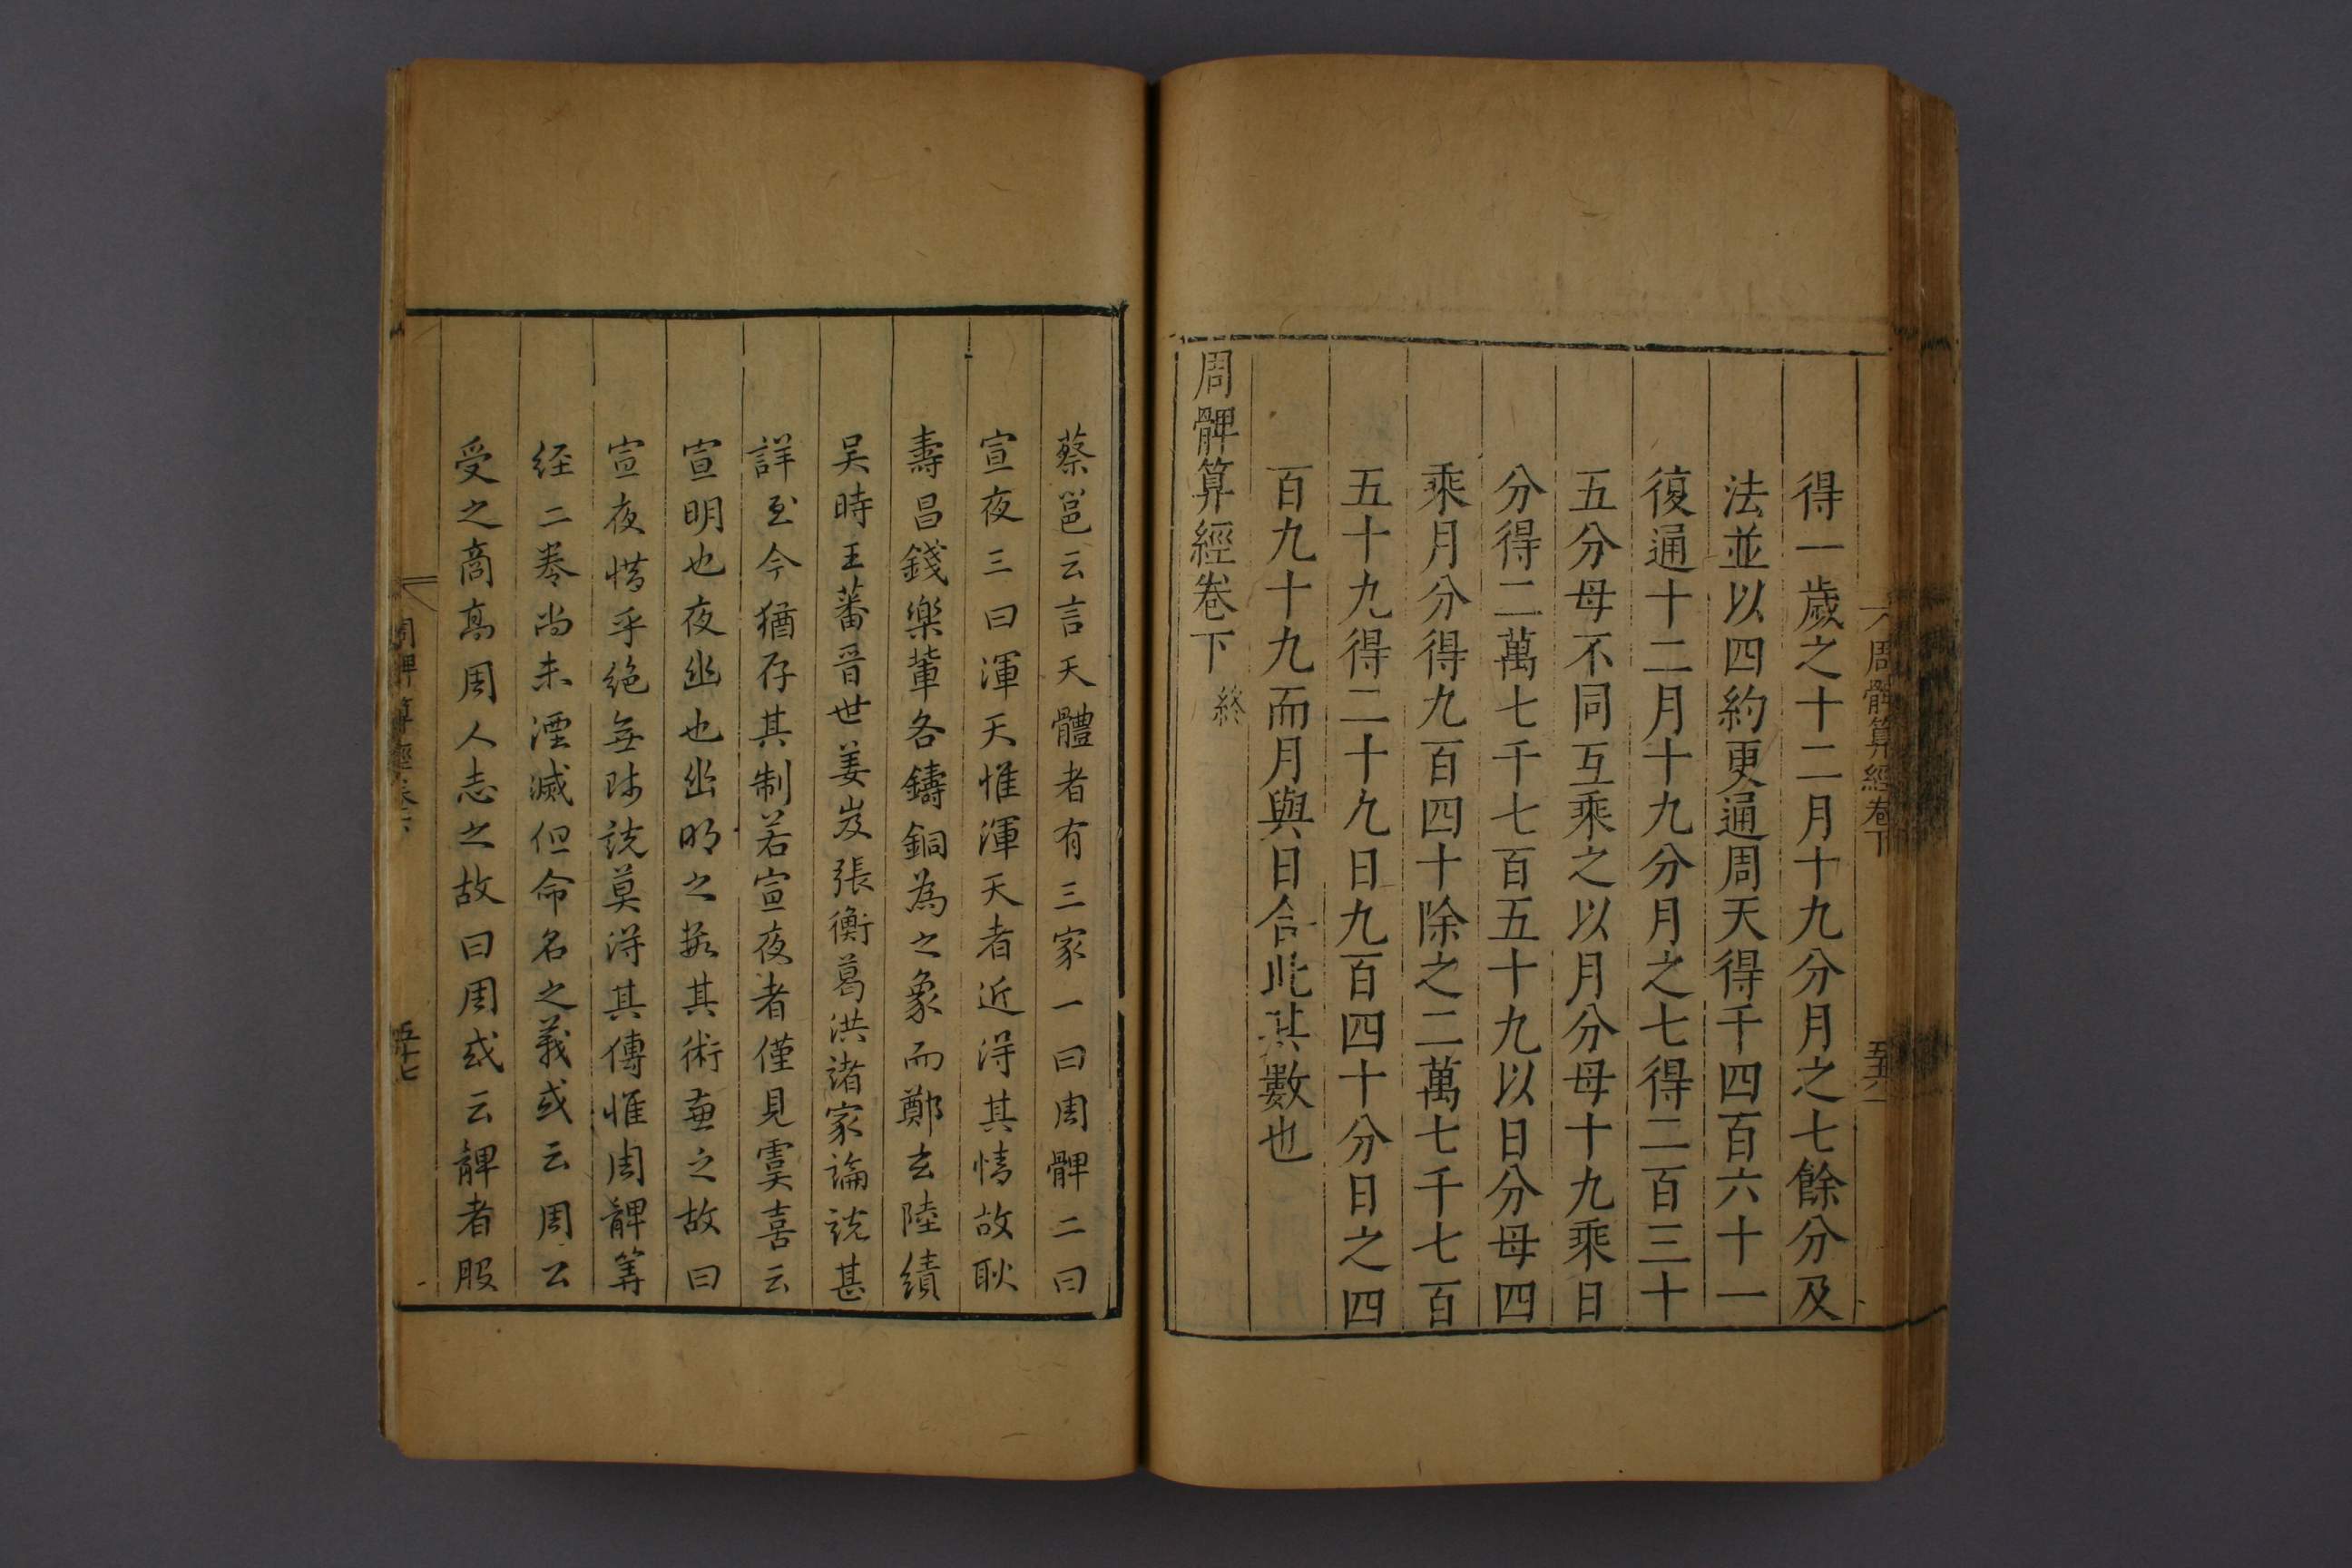 周髀算經卷下
得一歲之十二月十九分月之七餘分及
法並以四約更通周天得千四百六十一
復通十二月十九分月之七得二百三十
五分母不同互乘之以月分母十九乘日
分得二萬七千七百五十九以日分母四
乘月分得九百四十除之二萬七千七百
五十九得二十九日九百四十分日之四
百九十九而月與日合此其數也
周髀算經卷下 終
蔡邕云言天體者有三家一曰周髀二曰
宣夜三曰渾天惟渾天者近得其情故耿
壽昌錢樂輩各鑄銅為之象而鄭玄陸績
吴時王蕃晉世姜岌張衡葛洪諸家論説甚
詳至今猶存其制若宣夜者僅見虞喜云
宣明也夜幽也幽明之數其術兼之故曰
宣夜惜乎絶無師説莫得其傳惟周髀筭
経二卷尚未湮滅但命名之義或云周公
受之商高周人志之故曰周或云髀者股
周髀算經卷下
五十七